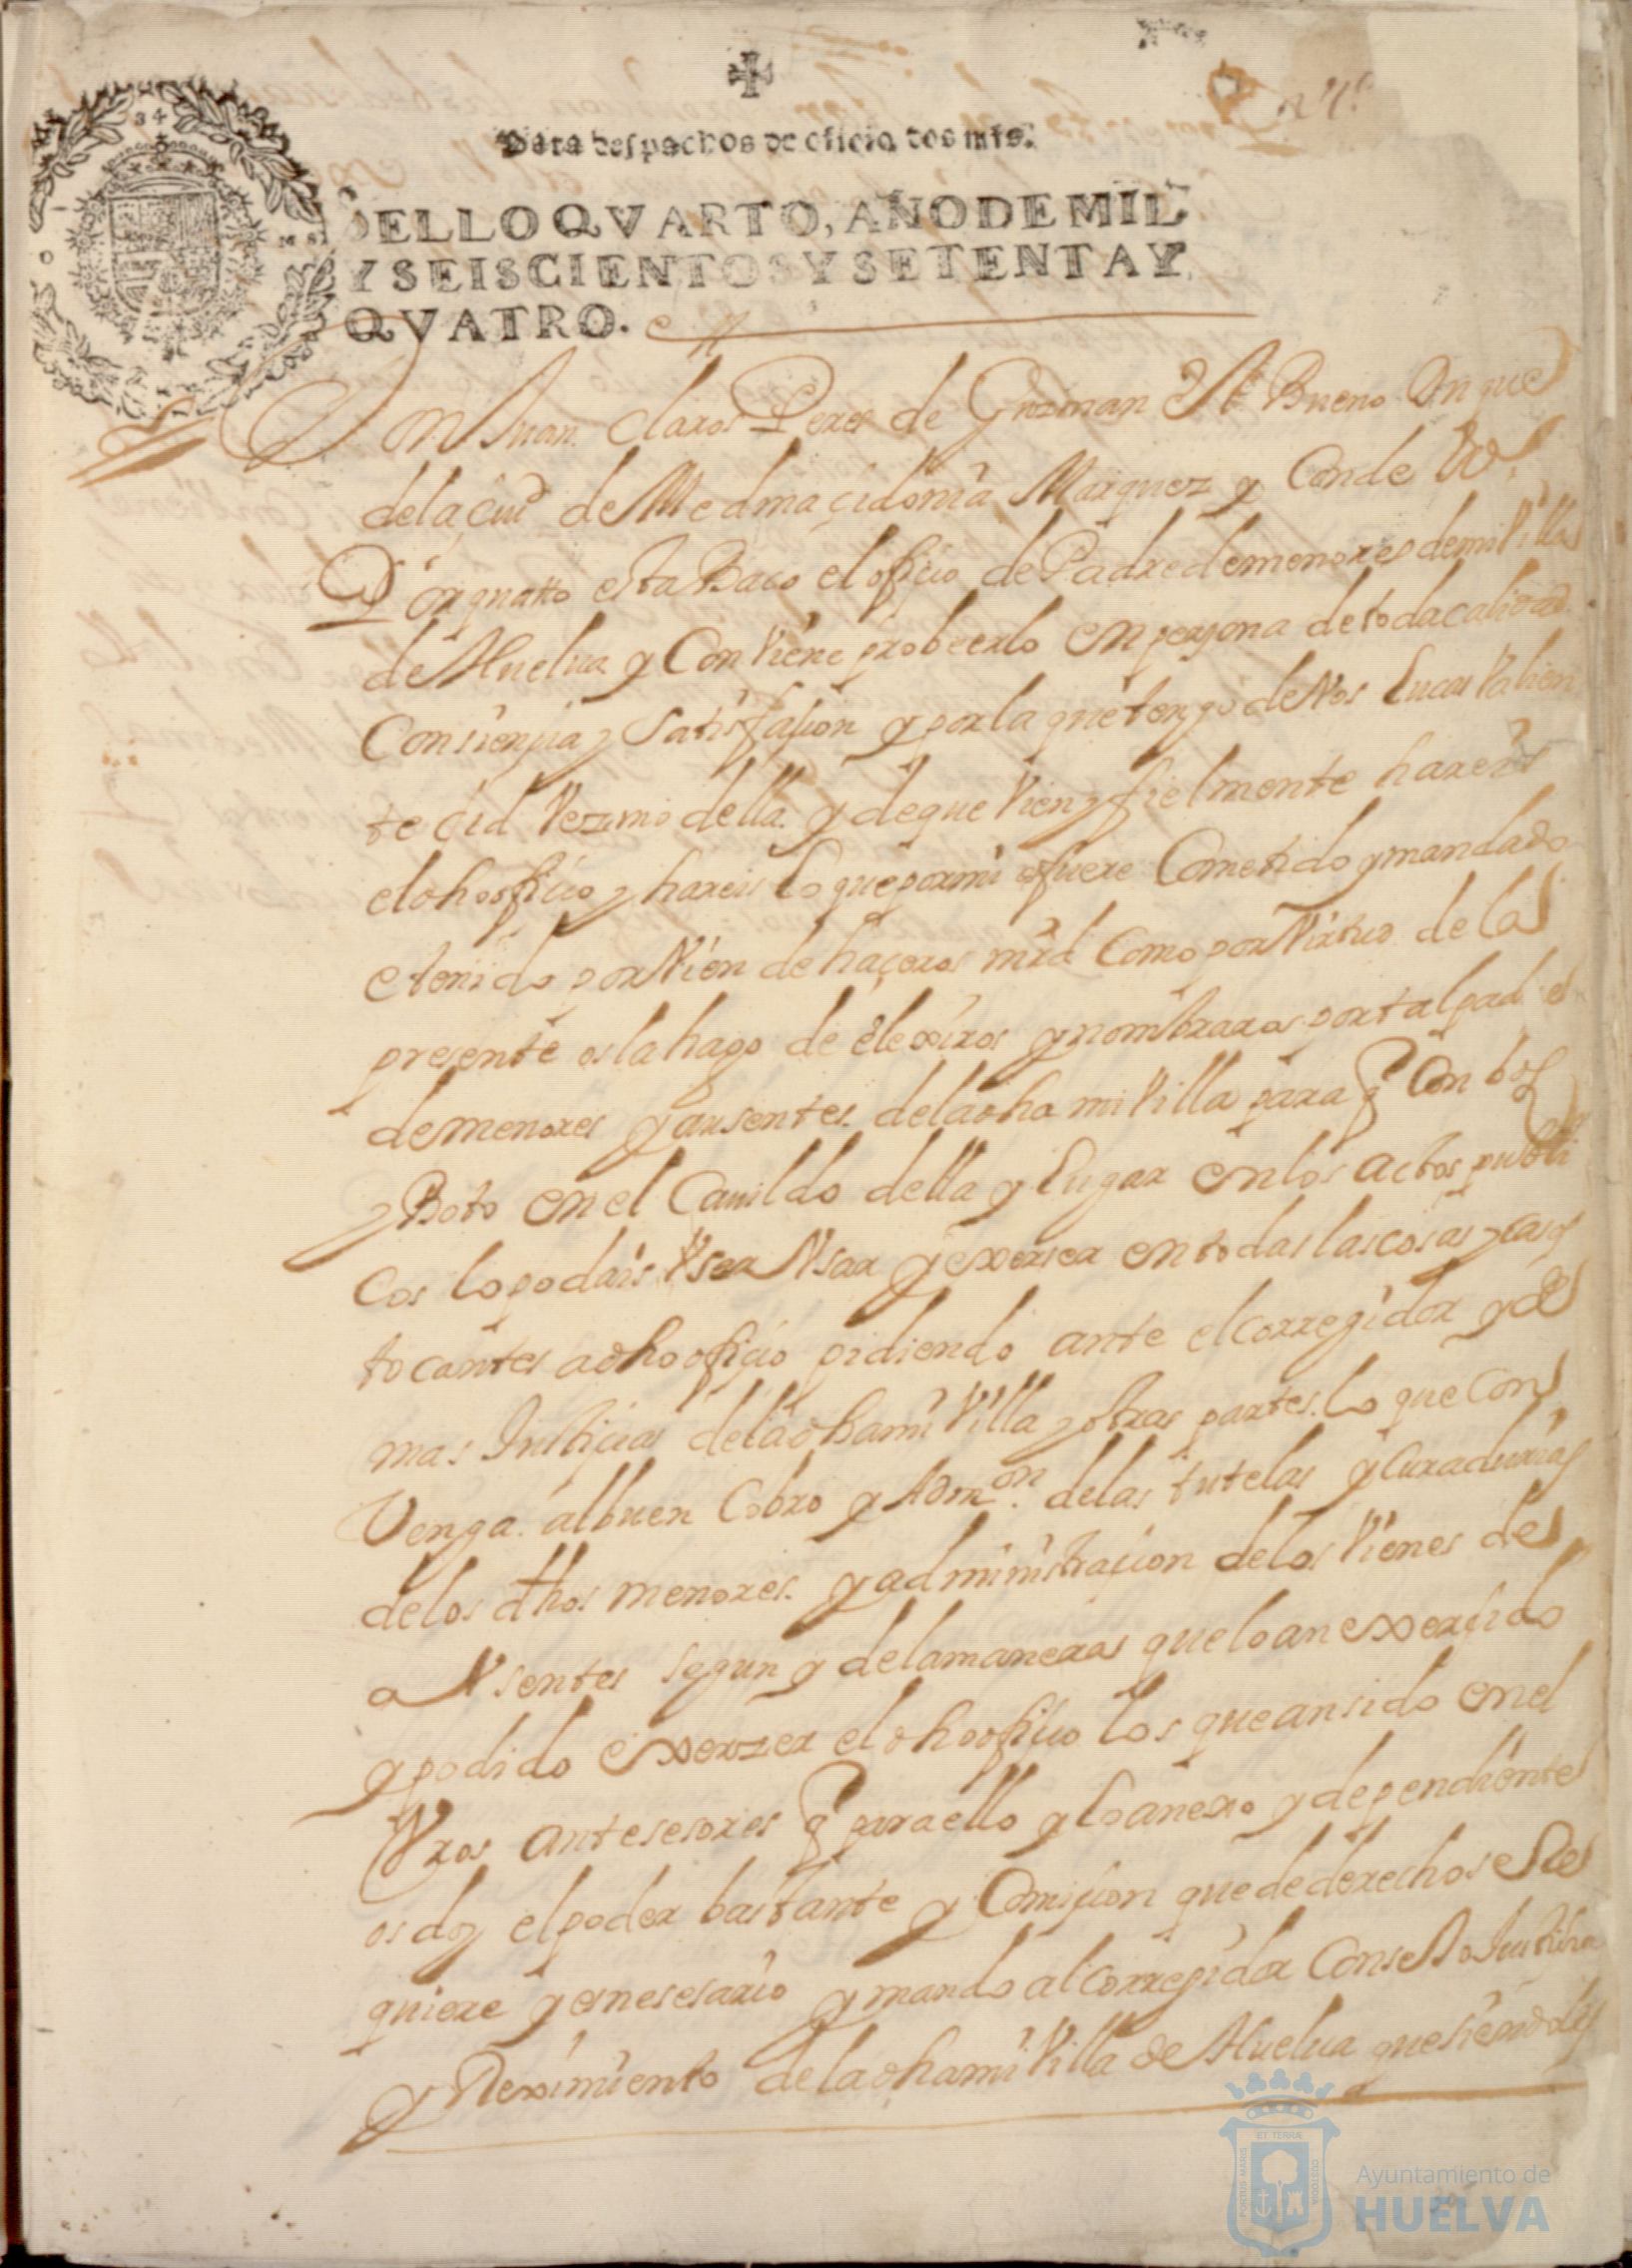 Para despachos de oficio dos mrs.
SELLO QVARTO, AÑO DE MIL
Y SEISCIENTOS Y SETENTA Y
QVATRO.
Don Juan Claros Perez de Guzman el Bueno Duque
de la ciud de Medina çidonia Marquez y Conde
Por quanto esta Baco el ofiçio de Padre de menores de mi Villa
de Huelua y Conviene probeerlo en persona de toda calidad
Consienςia y Satisfaςion y por la que tengo de Vos Lucas Valien
te Cid Vezino della y de que vien y fielmente hareis
el dho ofiçio y hareis lo que por mi os fuere Cometido y mandado
e tenido por Vien de haçeros mrd Como por Virtud de la
presente os la hago de elexiros y nombraros por tal pad e
de menores y ausentes de la dha mi Villa para q Con boz
y Boto en el Cauildo della y Lugar en los actos publi
cos lo podais Vsar y exerser en todas las cosas y casos
tocantes a dho ofiçio pidiendo ante el corregidor y de
mas Justiçias de la dha mi Villa y otras partes lo que Con
Venga al buen Cobro y Adm.on de las tutelas y Curadurias
de los dhos menores y administraçion de los Vienes de
aVsentes segun y de la manera que lo an exerçido
y podido exerzer el dho ofiçio los que an sido en el
Vros antesesores q para ello y lo anexo y dependiente
os doy el poder bastante y Comiçion que de derecho se Re
quiere y es nesesario y mando al corregidor Consejo Justiçia
y Reximiento de la dha mi Villa de Huelua que siendoles
PORTUS MARIS
ET TERRÆ
CUSTODIA
Ayuntamiento de
HUELVA